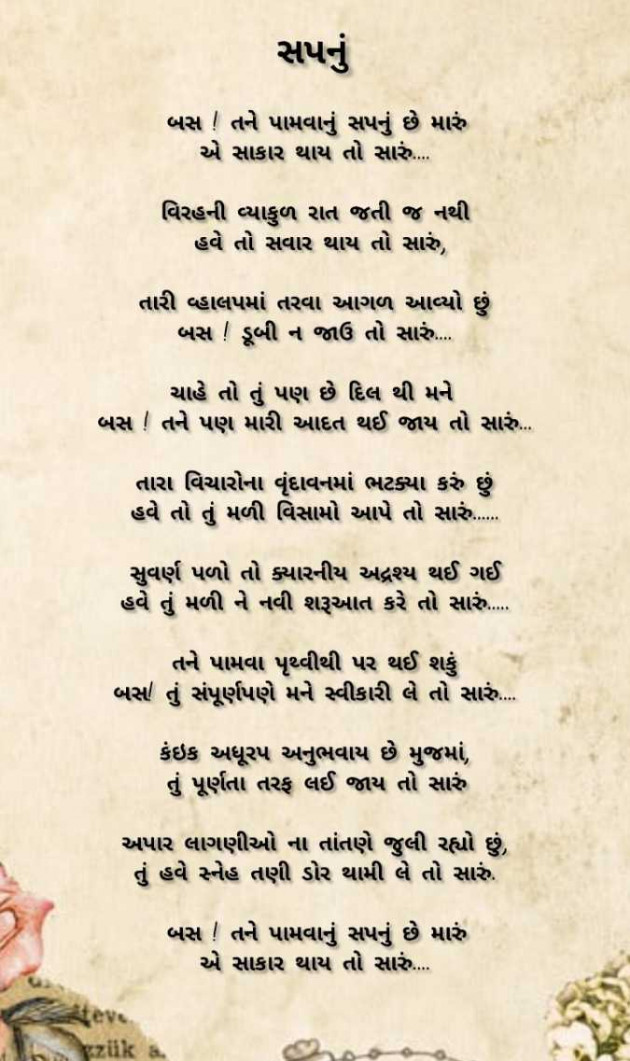 સપનું
બસ ! તને પામવાનું સપનું છે મારું
એ સાકાર થાય તો સારું....
વિરહની વ્યાકુળ રાત જતી જ નથી
હવે તો સવાર થાય તો સારું,
તારી વ્હાલપમાં તરવા આગળ આવ્યો છું
બસ ! ડૂબી ન જાઉ તો સારું....
ચાહે તો તું પણ છે દિલ થી મને
બસ ! તને પણ મારી આદત થઈ જાય તો સારું...
તારા વિચારોના વૃંદાવનમાં ભટક્યા કરું છું
હવે તો તું મળી વિસામો આપે તો સારું......
સુવર્ણ પળો તો ક્યારનીય અદ્રશ્ય થઈ ગઈ
હવે તું મળી ને નવી શરૂઆત કરે તો સારું.....
તને પામવા પૃથ્વીથી પર થઈ શકું
બસ! તું સંપૂર્ણપણે મને સ્વીકારી લે તો સારું....
કંઇક અધૂરપ અનુભવાય છે મુજમાં,
તું પૂર્ણતા તરફ લઈ જાય તો સારું
અપાર લાગણીઓ ના તાંતણે જુલી રહ્યો છું,
તું હવે સ્નેહ તણી ડોર થામી લે તો સારું.
બસ ! તને પામવાનું સપનું છે મારું
એ સાકાર થાય તો સારું....